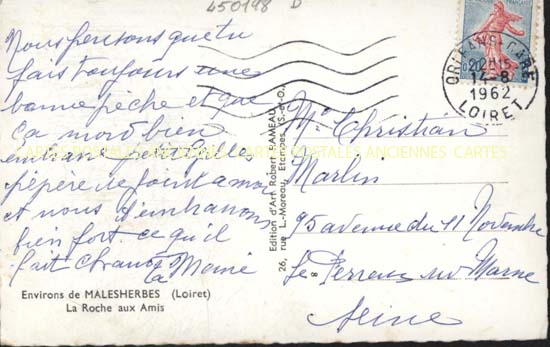 450198 D
Nous pensons que tu
fais toujours une
bonne pêche et que
ça mord bien
pépère se joint a moi
et nous t'embrassons
bien fort ce qu'il
fait chaud
la Mémé
Environs de MALESHERBES (Loiret)
La Roche aux Amis
Edition d'Art Robert RAMEAU
26, rue L.-Moreau, Etampes (S.-&-O.)
8
ORLEANS GARE
20H15
14-8
1962
LOIRET
Mr Christian
Martin
95 avenue du 11 Novembre
Le Perreux sur Marne
Seine
CARTES POSTALES ANCIENNES CARTES